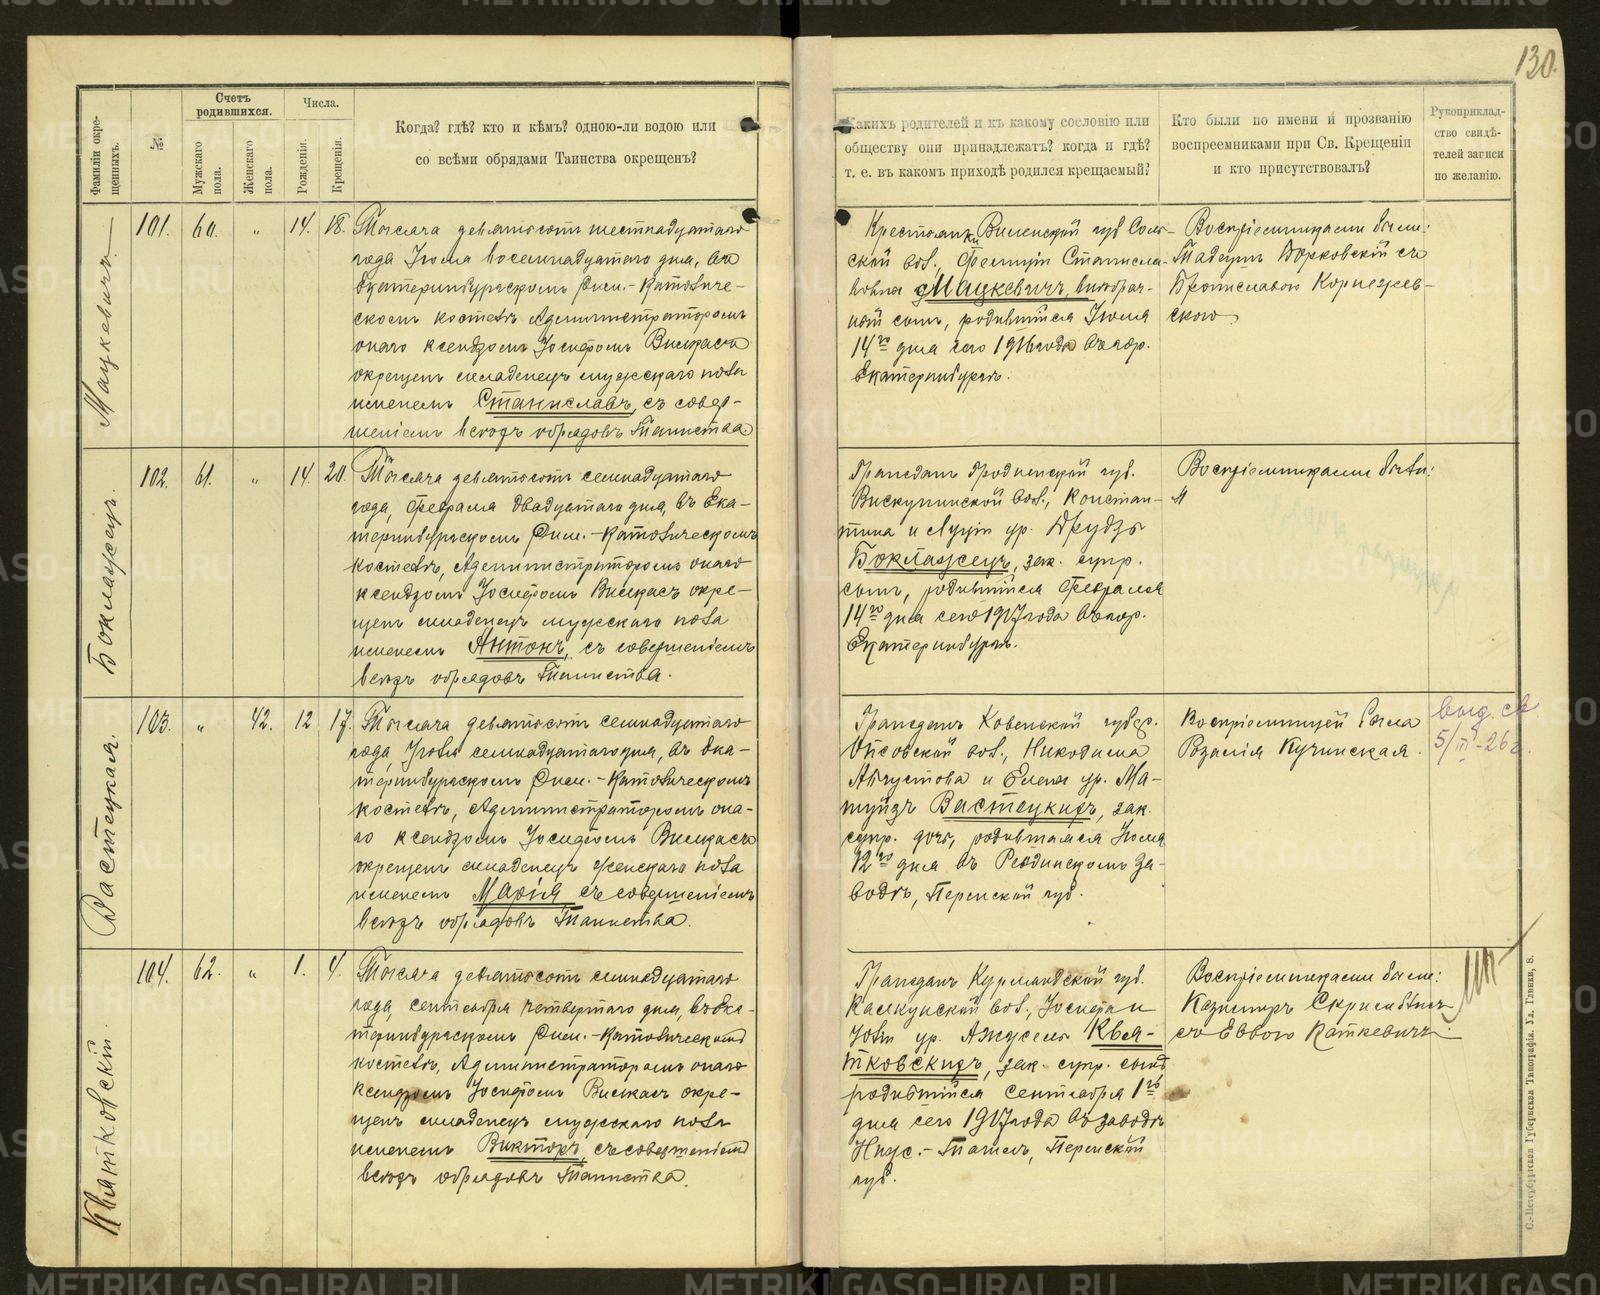 130.
Фамиліи окре-
щенныхъ.
№
Счетъ
родившихся.
Мужскаго
пола.
Женскаго
пола.
Числа.
Рожденія.
Крещенія.
Когда? гдѣ? кто и кѣмъ? одною-ли водою или
со всѣми обрядами Таинства окрещенъ?
Какихъ родителей и къ какому сословію или
обществу они принадлежатъ? когда и гдѣ?
т. е. въ какомъ приходѣ родился крещаемый?
Кто были по имени и прозванію
воспреемниками при Св. Крещеніи
и кто присутствовалъ?
Рукоприклад-
ство свидѣ-
телей записи
по желанію.
Мацкевичъ
101. 60. " 14. 18.
Тысяча девятьсотъ шестнадцатаго
года Іюля восемнадцатаго дня, въ
Екатеринбургскомъ Рим.-Католиче-
скомъ костелѣ Администраторомъ
онаго ксендзомъ Іосифомъ Вилкасъ
окрещенъ младенецъ мужскаго пола
именемъ Станиславъ, съ совер-
шеніемъ всѣхъ обрядовъ Таинства.
Крестьянки Виленской губ.
ской вол., Фелиціи Станисла-
вовны Мацкевичъ, внѣбрач-
ный сынъ, родившійся Іюля
14го дня сего 1916 года въ гор.
Екатеринбургѣ.
Воспріемниками были:
Тадеушъ Борковскій съ
Брониславою
скою
Боклажецъ.
102. 61. " 14. 20.
Тысяча девятьсотъ семнадцатаго
года, Февраля двадцатаго дня, въ Ека-
теринбургскомъ Рим.-Католическомъ
костелѣ, Администраторомъ онаго
ксендзомъ Іосифомъ Вилкасъ окре-
щенъ младенецъ мужскаго пола
именемъ Антонъ, съ совершеніемъ
всѣхъ обрядовъ Таинства.
Гражданъ Гродненской губ.
вол., Констан-
тина и Луціи ур. Друдзь
Боклажецъ, зак. супр.
сынъ, родившійся Февраля
14го дня сего 1917 года въ гор.
Екатеринбургѣ.
Воспріемниками были:
Вастецкая.
103. " 42. 12 17.
Тысяча девятьсотъ семнадцатаго
года, Іюля семнадцатаго дня, въ Ека-
теринбургскомъ Рим.-Католическомъ
костелѣ, Администраторомъ она-
го ксендзомъ Іосифомъ Вилкасъ
окрещенъ младенецъ женскаго пола
именемъ Марія съ совершеніемъ
всѣхъ обрядовъ Таинства.
Гражданъ Ковенской губ.
вол., Никодима
Августова и Елены ур. Ма-
Вастецкихъ, зак.
супр. дочь, родившаяся Іюля
12го дня въ Ревдинскомъ за-
водѣ, Пермской губ.
Воспріемницей была
Розалія Кучинская.
выд. св
5/III-26 г.
Квятковскій.
104. 62. " 1. 4.
Тысяча девятьсотъ семнадцатаго
года, сентября четвертаго дня, въ Ека-
теринбургскомъ Рим.-Католическомъ
костелѣ, Администраторомъ онаго
ксендзомъ Іосифомъ Вилкасъ окре-
щенъ младенецъ мужскаго пола
именемъ Викторъ, съ совершеніемъ
всѣхъ обрядовъ Таинства.
Гражданъ Курляндской губ.
Калкунской вол., Іосифа и
ур. Квя-
тковскихъ, зак. супр. сынъ
родившійся сентября 1го
дня сего 1917 года въ заводѣ
Ниж.-Тагил, Пермской
губ.
Воспріемниками были:
Казимиръ
съ Евою Каткевичъ.
С.-Петербургская Губернская Типографія. Ул. Глинки, 8.
METRIKI.GASO-URAL.RU